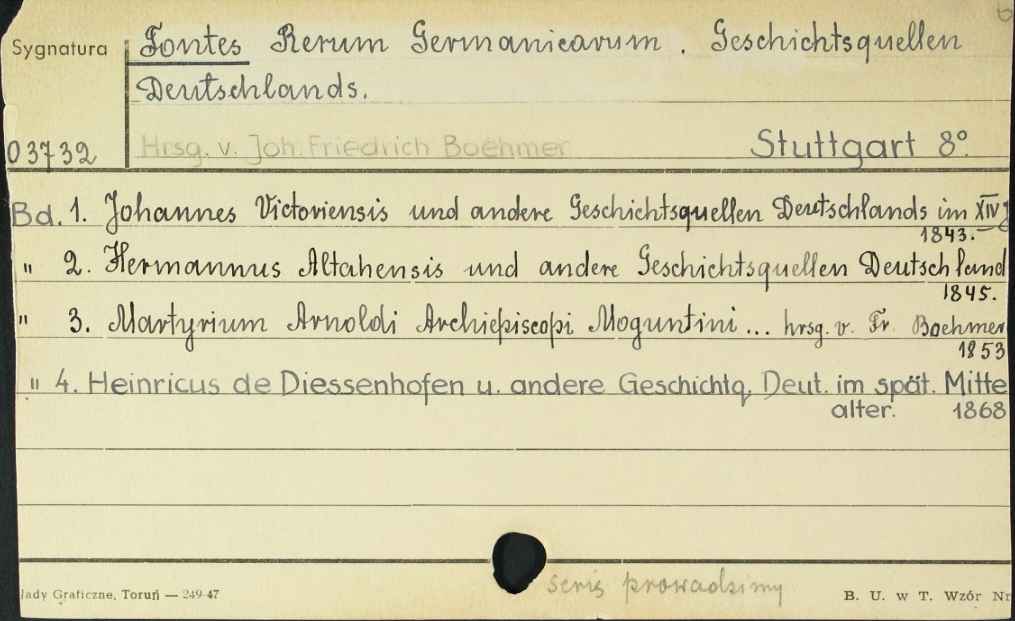 Sygnatura
Fontes Rerum Germanicarum. Geschichtsquellen
Deutschlands.
03732
Hrsg. v. Joh. Friedrich Boehmer Stuttgart 8º.
Bd. 1. Johannes Victoriensis und andere Geschichtsquellen Deutschlands im XIV J
1843.
" 2. Hermannus Altahensis und andere Geschichtsquellen Deutschland
1845.
" 3. Martyrium Arnoldi Archiepiscopi Moguntini... hrsg. v. Fr. Boehmer
1853
" 4. Heinricus de Diessenhofen u. andere Geschichtq. Deut. im spät. Mitte
alter. 1868
serię prowadzimy
łady Graficzne, Toruń — 249-47 B. U. w T. Wzór Nr